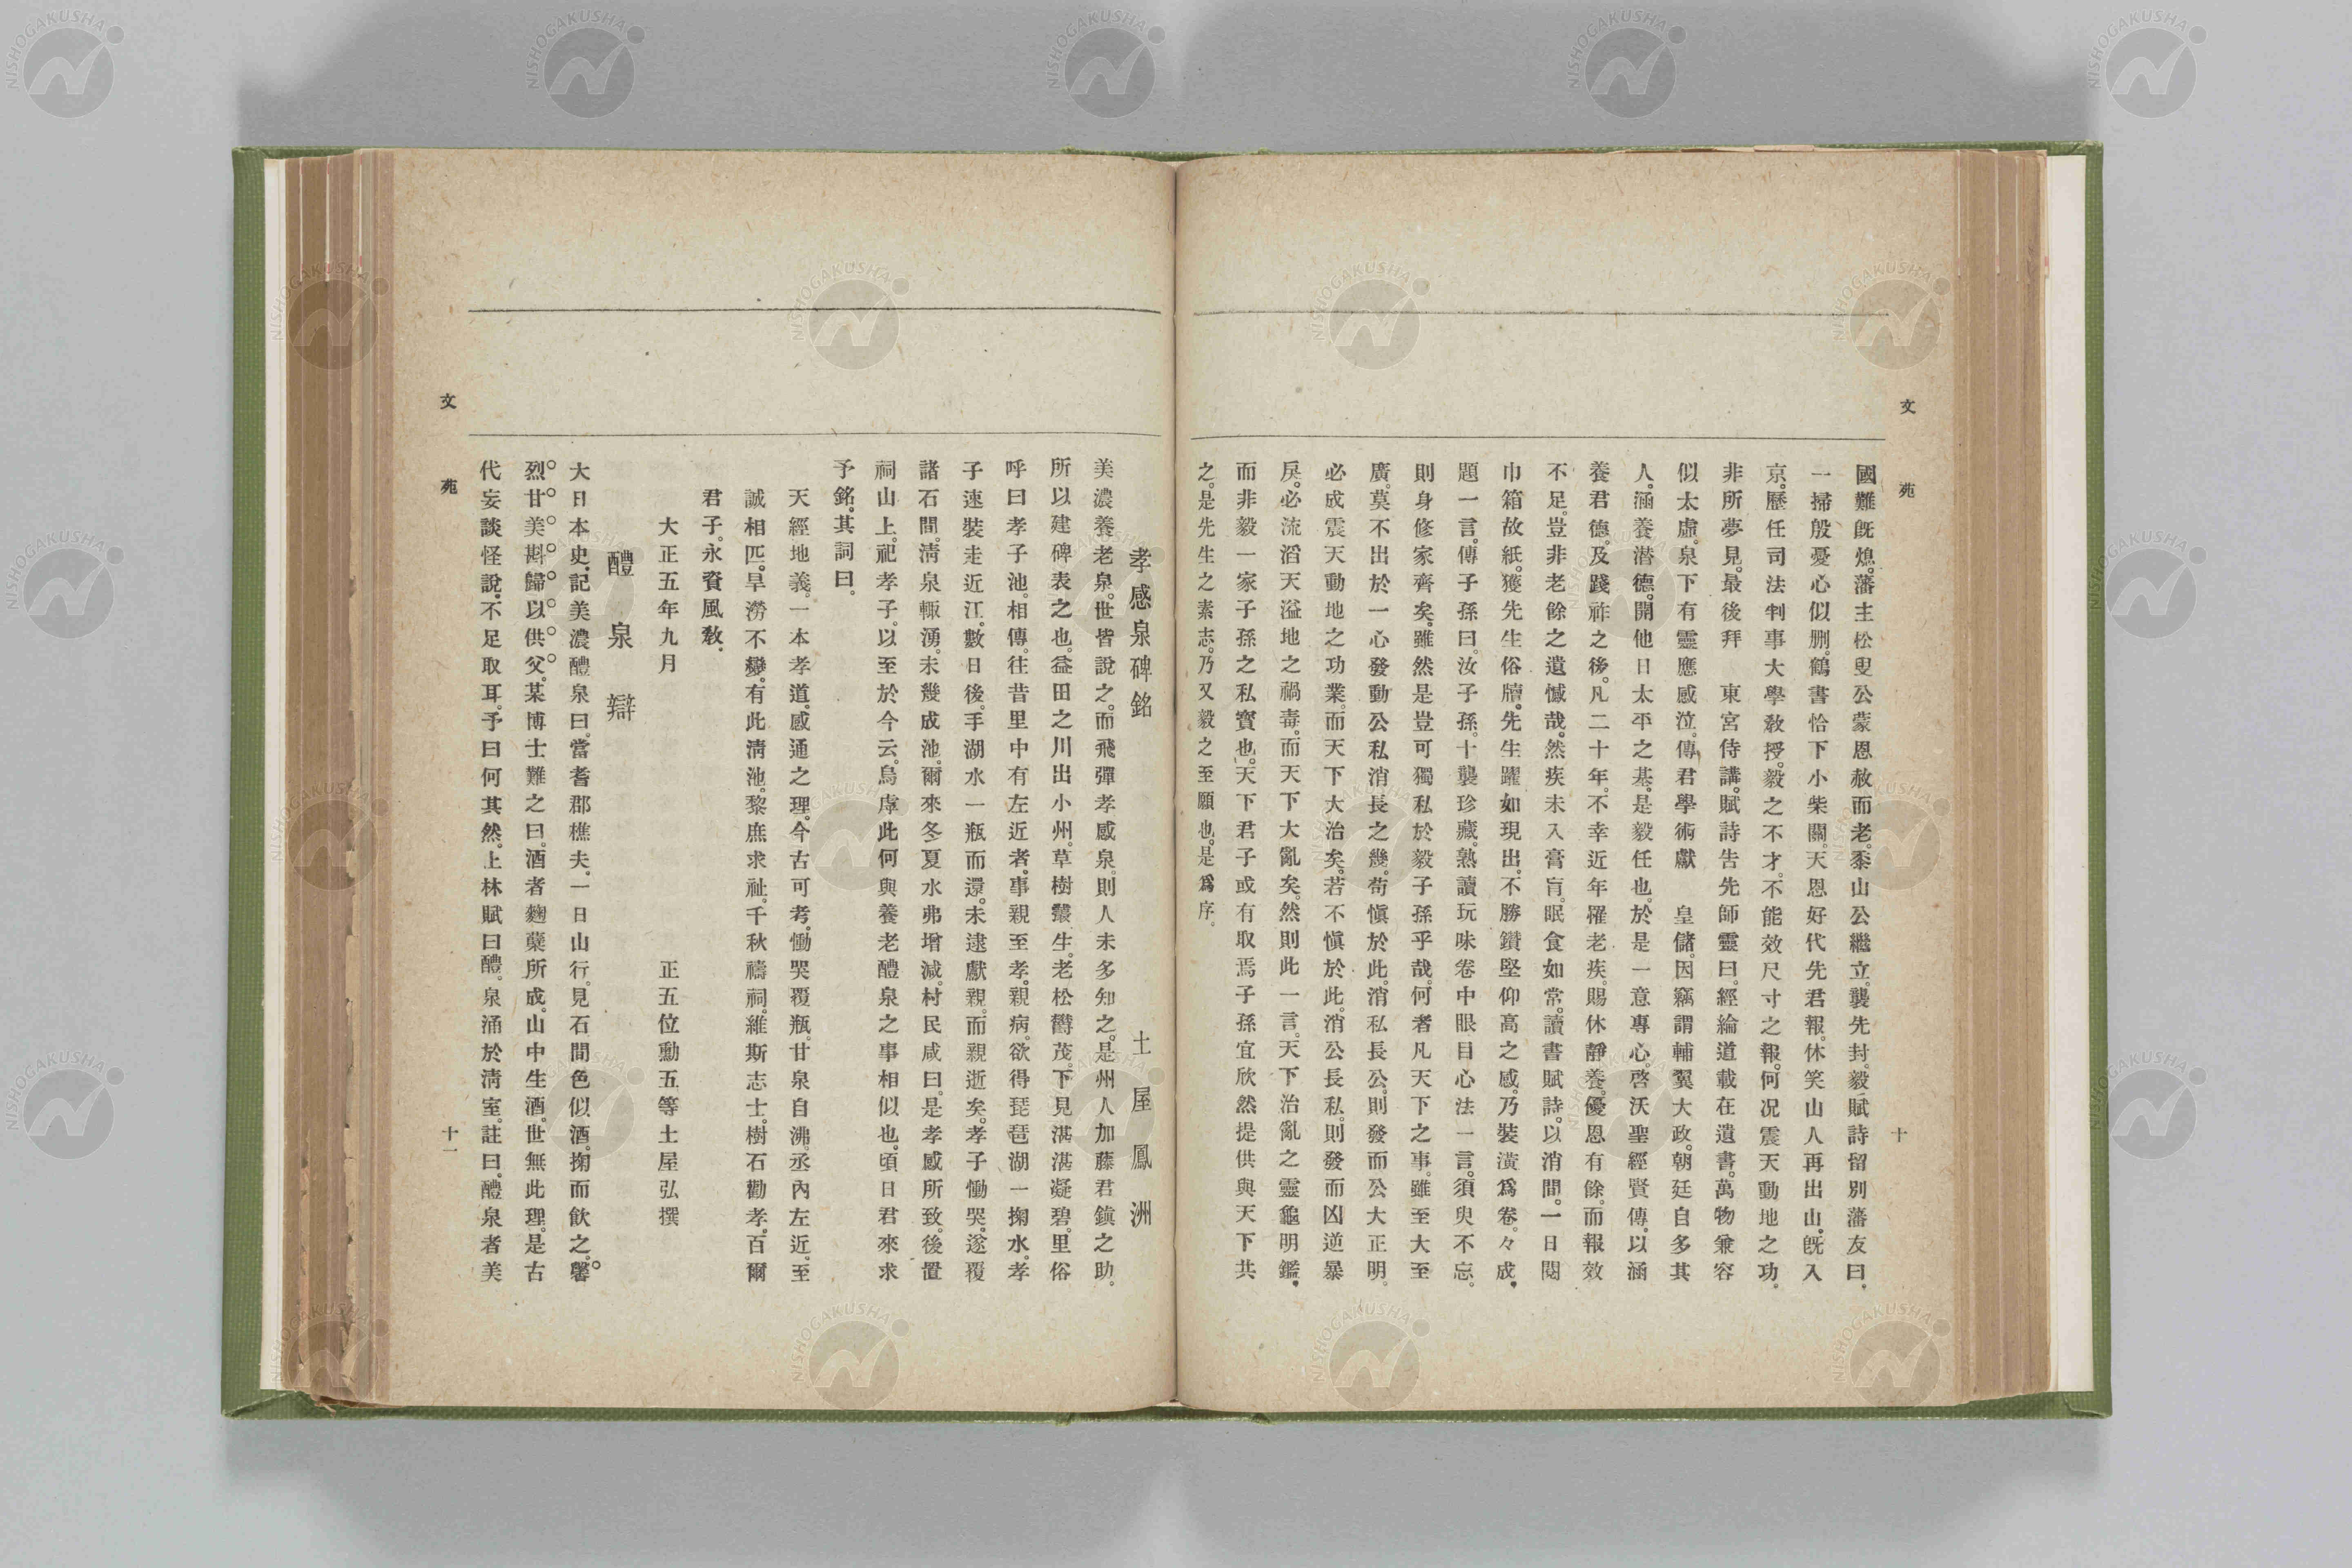 文苑
十
國難既熄。藩主松叟公蒙恩赦而老。黍山公繼立。襲先封。毅賦詩留別藩友曰。
一掃殷憂心似刪。鶴書恰下小柴關。天恩好代先君報。休笑山人再出山。既入
京。歷任司法判事大學教授。毅之不才。不能效尺寸之報。何況震天動地之功。
非所夢見。最後拜　東宮侍講。賦詩告先師靈曰。經綸道載在遺書。萬物兼容
似太虛。泉下有靈應感泣。傳君學術獻　皇儲。因竊謂輔翼大政。朝廷自多其
人。涵養潛德。開他日太平之基。是毅任也。於是一意專心。啓沃聖經賢傳。以涵
養君德。及踐祚之後。凡二十年。不幸近年罹老疾。賜休靜養。優恩有餘。而報效
不足。豈非老餘之遺憾哉。然疾未入膏肓。眠食如常。讀書賦詩。以消間。一日閱
巾箱故紙。獲先生俗牘。先生躍如現出。不勝鑽堅仰高之感。乃裝潢爲卷。々成。
題一言。傳子孫曰。汝子孫。十襲珍藏。熟讀玩味卷中眼目心法一言。須臾不忘。
則身修家齊矣。雖然是豈可獨私於毅子孫乎哉。何者凡天下之事。雖至大至
廣。莫不出於一心發動公私消長之幾。苟愼於此。消私長公。則發而公大正明。
必成震天動地之功業。而天下大治矣。若不愼於此。消公長私。則發而凶逆暴
戾。必流滔天溢地之禍毒。而天下大亂矣。然則此一言。天下治亂之靈龜明鑑。
而非毅一家子孫之私寶也。天下君子或有取焉子孫宜欣然提供與天下共
之。是先生之素志。乃又毅之至願也。是爲序。
孝感泉碑銘　土屋鳳洲
美濃養老泉。世皆說之。而飛彈孝感泉。則人未多知之。是州人加藤君鎭之助。
所以建碑表之也。益田之川出小州。草樹叢生。老松欝茂。下見湛湛凝碧。里俗
呼曰孝子池。相傳。往昔里中有左近者。事親至孝。親病。欲得琵琶湖一掬水。孝
子速裝走近江。數日後。手湖水一瓶而還。未逮獻親。而親逝矣。孝子慟哭。遂覆
諸石間。清泉輙湧。未幾成池。爾來冬夏水弗增減。村民咸曰。是孝感所致。後置
祠山上。祀孝子。以至於今云。烏虖此何與養老醴泉之事相似也。頃日君來求
予銘。其詞曰。
天經地義。一本孝道。感通之理。今古可考。慟哭覆瓶。甘泉自沸。丞內左近。至
誠相匹。旱澇不變。有此清池。黎庶求祉。千秋禱祠。維斯志士。樹石勸孝。百爾
君子。永資風教。
大正五年九月　正五位勳五等土屋弘撰
醴泉辯
大日本史。記美濃醴泉曰。當耆郡樵夫。一日山行。見石間色似酒。掬而飲之。馨
烈甘美。斟歸以供父。某博士難之曰。酒者麴糵所成。山中生酒。世無此理。是古
代妄談怪說。不足取耳。予曰何其然。上林賦曰。醴泉涌於淸室。註曰。醴泉者美
文苑
十一